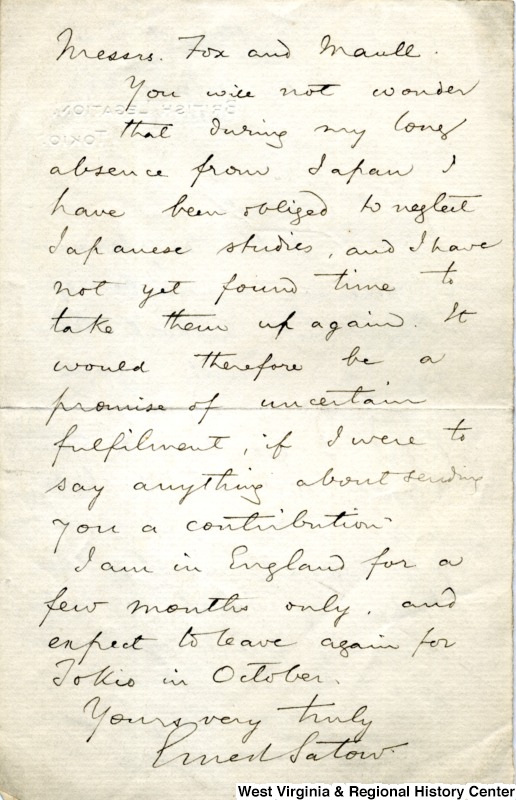 Messrs. Fox and Maull.
You will not wonder
that during my long
absence from Japan I
have been obliged to neglect
Japanese studies, and I have
not yet found time to
take them up again. It
would therefore be a
promise of uncertain
fulfilment, if I were to
say anything about sending
you a contribution.
I am in England for a
few months only, and
expect to leave again for
Tokio in October.
Yours very truly
Ernest Satow.
BRITISH LEGATION,
TOKIO.
West Virginia & Regional History Center